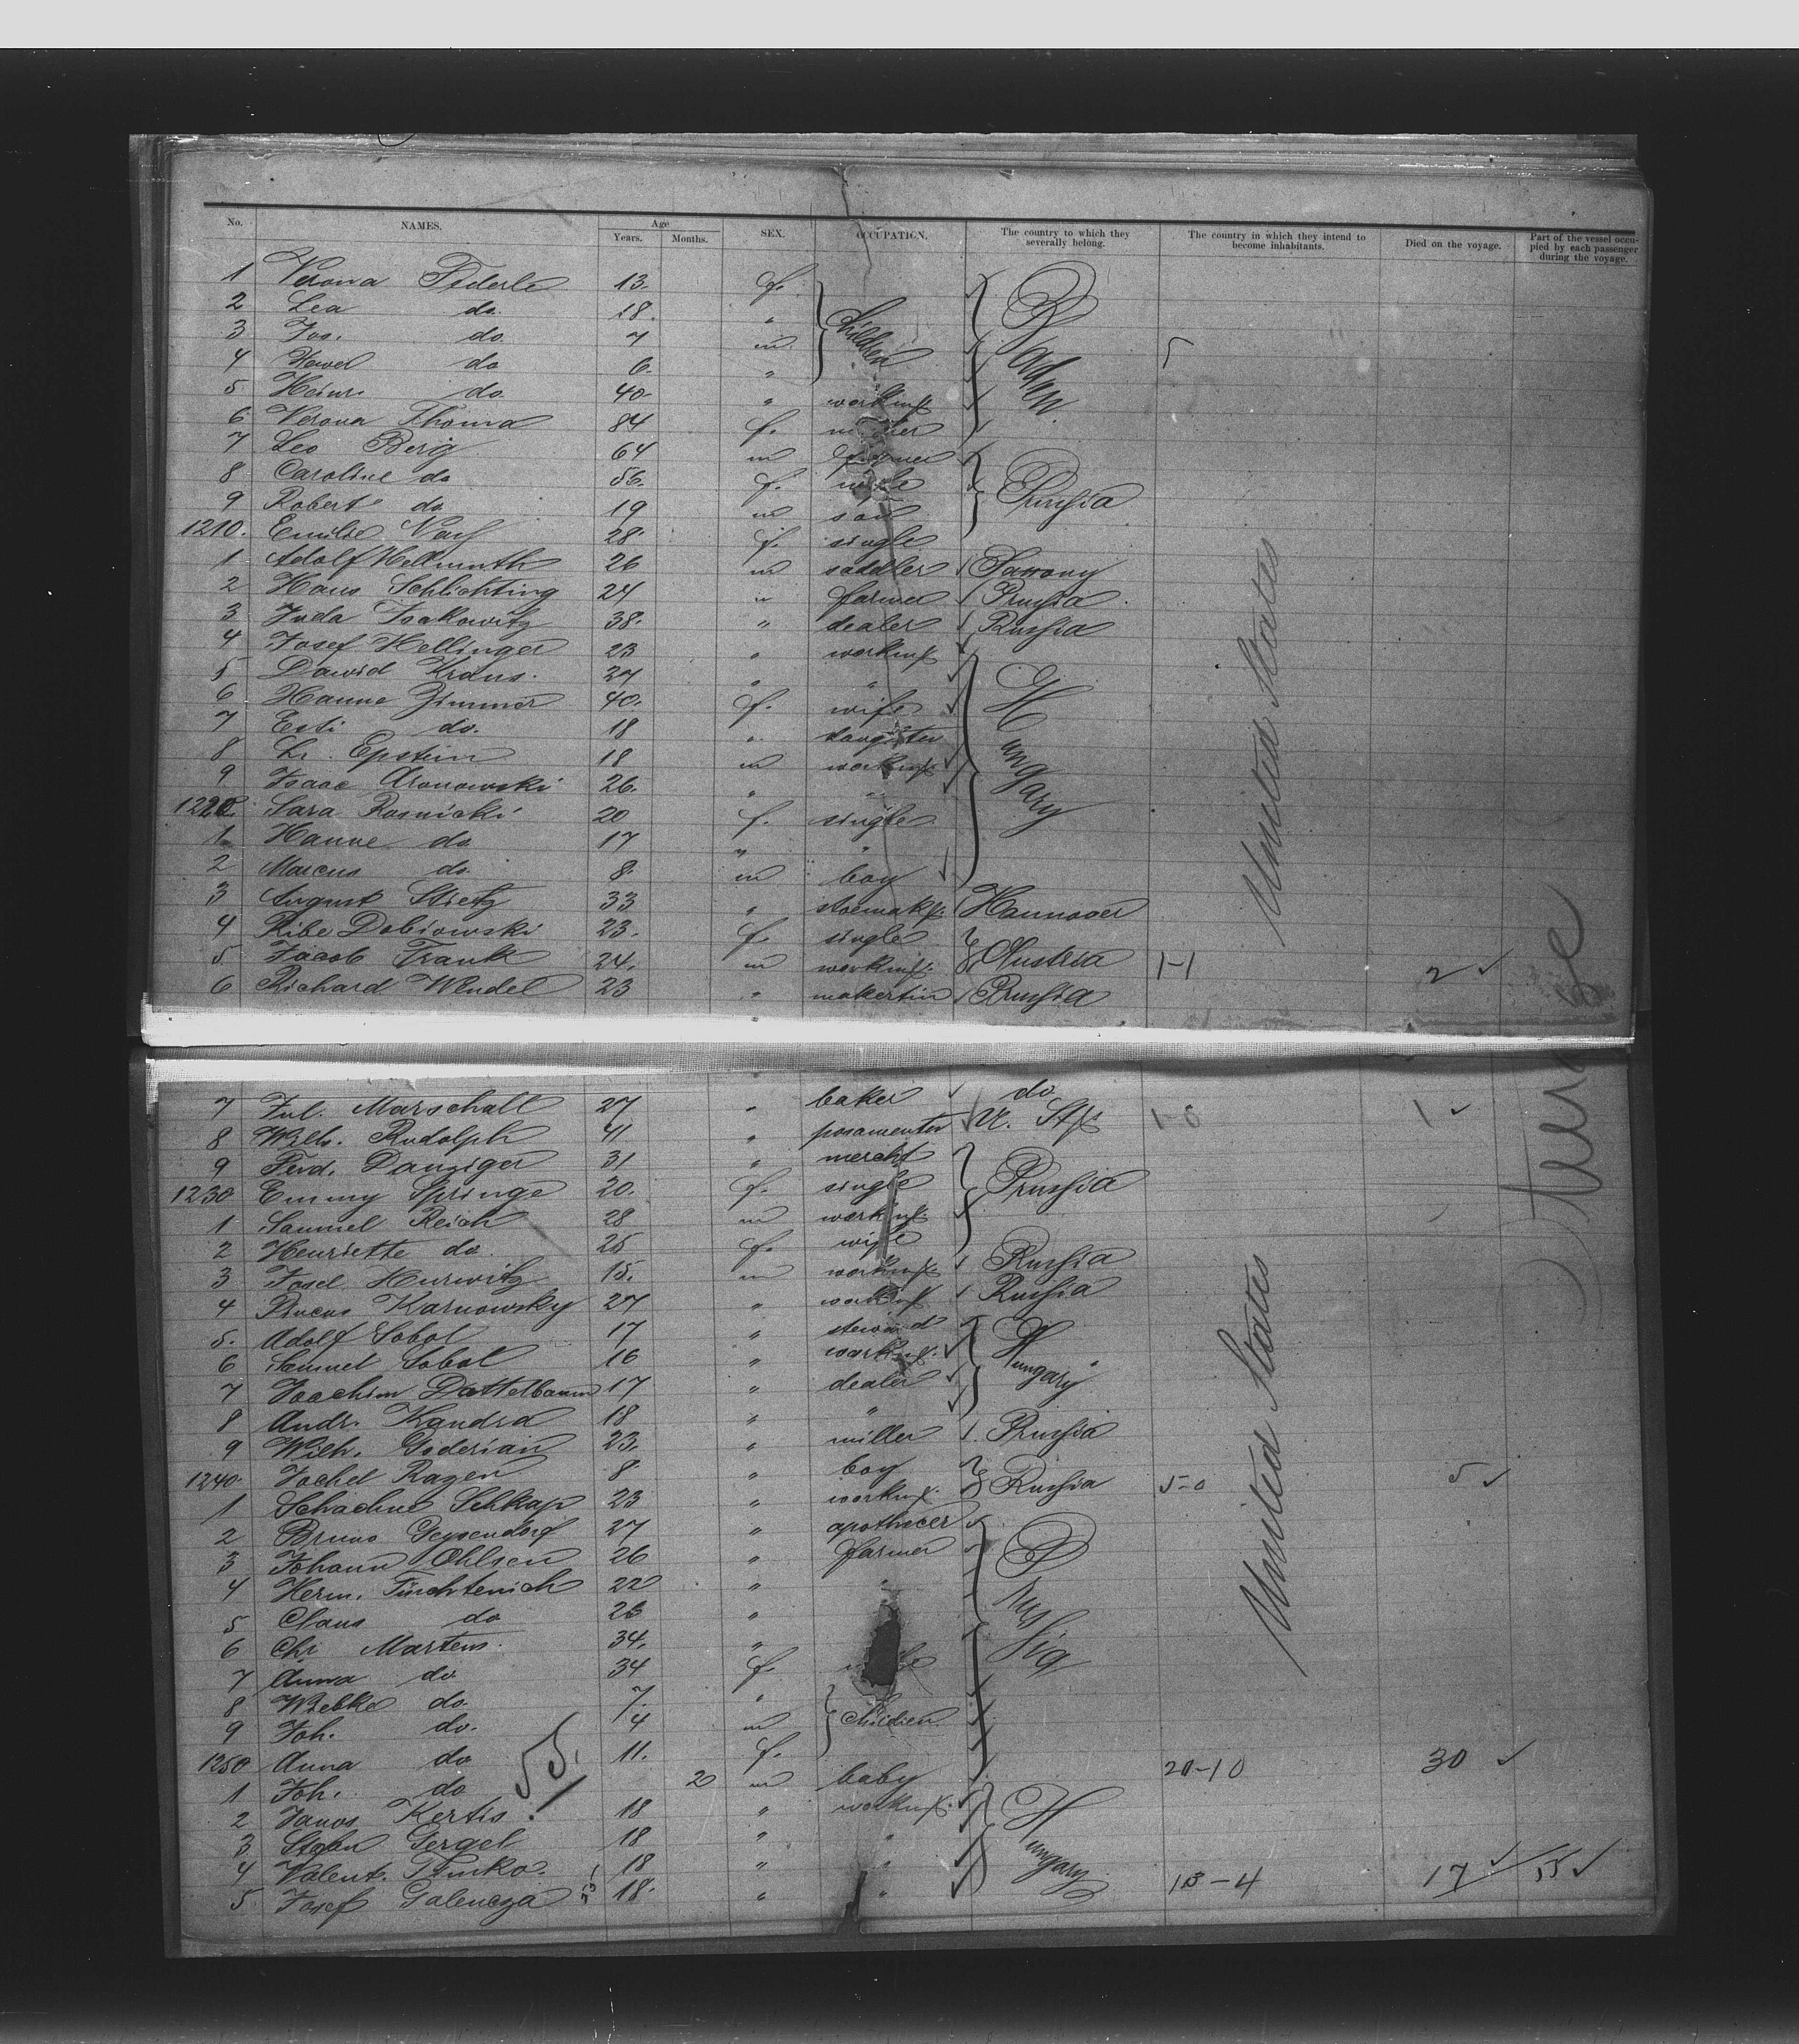 No. NAMES. Age Years. Months. SEX. OCCUPATION. The country to which they severally belong. The country in which they intend to become inhabitants. Died on the voyage. Part of the vessel occupied by each passenger during the voyage.
1 Verona Federle 13. f. children Baden
2 Lea do. 18. "
3 Jos. do 7 m
4 do 6. "
5 Heinr. do. 40. " 
6 Verona Thoma 84 f.
7 Leo Berg 64 m farmer Prussia
8 Caroline do 56. f. wife
9 Robert do 19 m son
1210. Emilie 28. f. single
1 Adolf Hellmuth 26 m saddler Saxony
2 Hans Schlichting 24 " farmer Prussia
3 Juda Isakowitz 38. " dealer Russia
4 Josef Hellinger 23 " Hungary
5 Dawid Kraus. 27 " "
6 Hanne Zimmer 40. f. wife
7 Esti do. 18 "
8 Epstein 18 m
9 Isaac Aronowski 26. " "
1220. Sara Rosnicki 20 f. single
1 Hanne do 17 " "
2 Marcus do. 8. m boy
3 August 33 " Hannover
4 Ribe Dobiowski 23. f. single Austria
5 Jacob Frank 24. m 1-1 2
6 Richard Wendel 23 " Prussia
United States
7 Jul. Marschall 27 " baker do.
8 Wilh. Rudolph 41 " posamenter U. Sts 1-0 1
9 Ferd. Danziger 31 " mercht Prussia
1230 Emmy Springe 20. f. single
1 Samuel Reich 28 m
2 Henriette do. 25 f. wife
3 Josel Hurwitz 15. m Russia
4 Karnowsky 27 " Russia
5. Adolf Sobol 17 " steward Hungary
6 Samuel Sobol 16 "
7 Joachim Dattelbaum 17 " dealer
8 Andr. Kandra 18 " "
9 Wilh. Goderian 23. " miller Prussia
1240. Jochel Razen 8. " boy Russia 5-0 5
1 23 "
2 Bruno Geysendorf 27 " apothecer Prussia
3 Johann Ohlsen 26 " farmer
4 Herm. 22 " "
5 Claus do 26 "
6 Chr Martens. 34. "
7 Anna do 34 f.
8 Wiebke do. 7. " children
9 Joh. do. 4 m
1250 Anna do 11. f. 20-10 30
1 Joh. do 20 m baby
2 Janos Kertis 18 " Hungary
3 Gergel 18 " "
4 Valent. 18 " "
5. Josef Galencza 18. " " 13-4 17 55
United States
55.